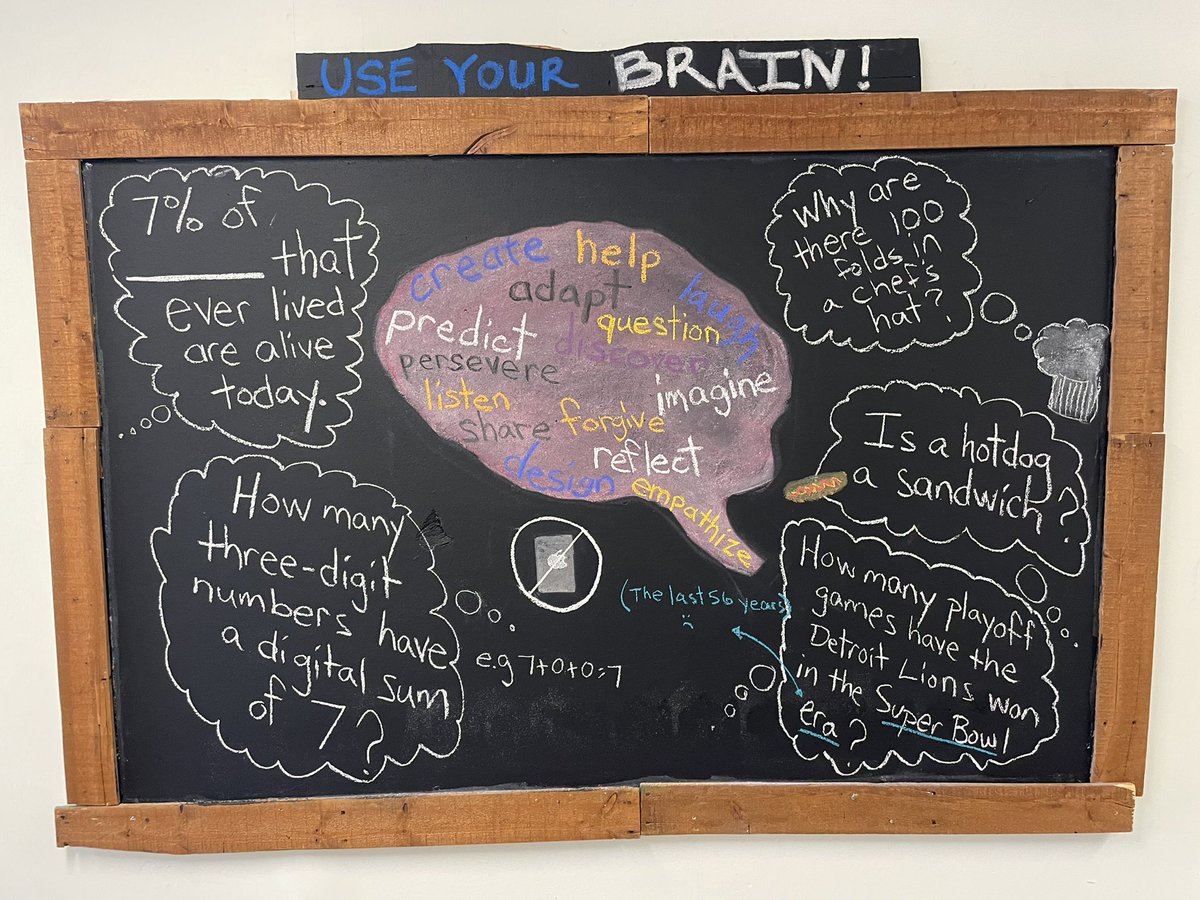 USE YOUR BRAIN!
7% of
______ that
ever lived
are alive
today.
How many
three-digit
numbers have
a digital sum
of 7?
e.g 7+0+0=7
create help
adapt laugh
predict question
discover
persevere
imagine
listen
share forgive
reflect
design
empathize
Why are
there 100
folds in
a chef's
hat?
Is a hotdog
a sandwich?
How many playoff
games have the
Detroit Lions won
in the Super Bowl
era?
(The last 56 years)